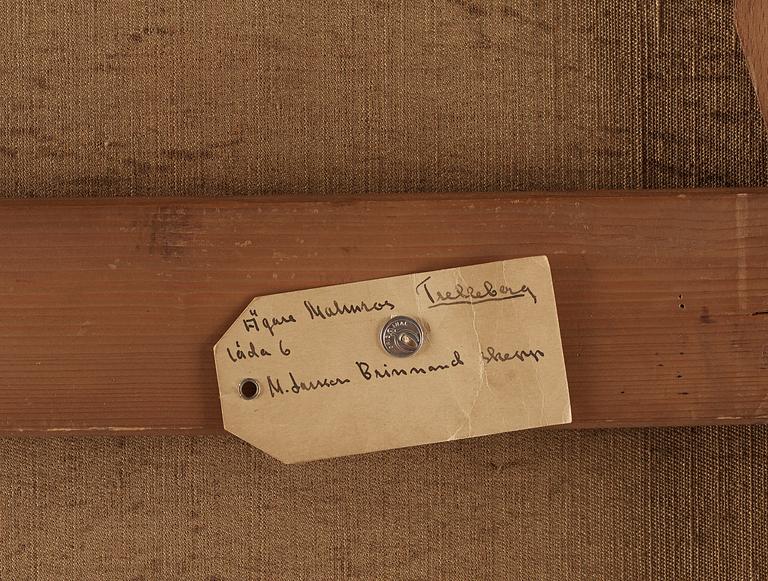 Ägare Malmros Trelleborg
Låda 6
M. Larsson Brinnand skepp